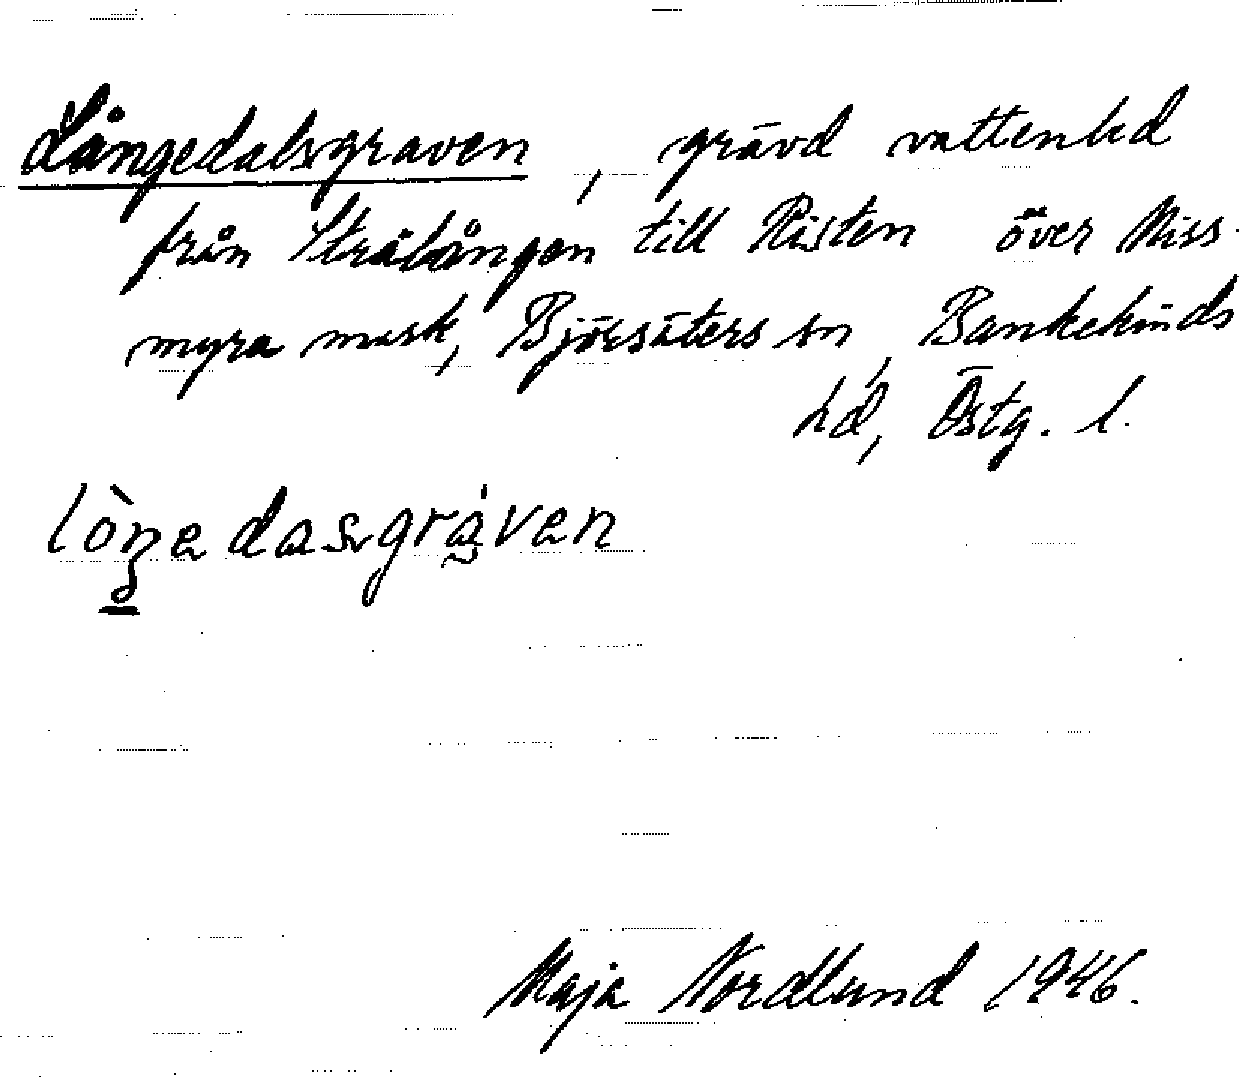 Långedalsgraven, grävd vattenled
från Strålången till Risten över Miss-
myra mask, Björsäters sn, Bankekinds
hd, Östg. l.
Maja Nordlund 1946.